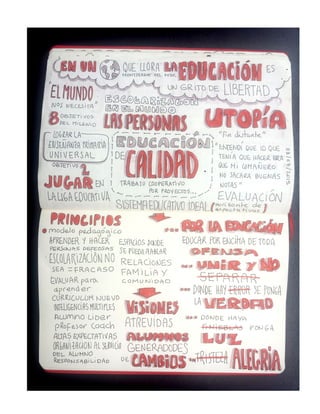 EN UN QUE LLORA LA EDUCACIÓN ES
UN GRITO DE LIBERTAD
EL MUNDO
NOS NECESITA
8 OBJETIVOS
DEL MILENIO
LOGRAR LA
ENSEÑANZA PRIMARIA
UNIVERSAL
OBJETIVO 2
JUGAR EN
LA LIGA EDUCATIVA
ESCOLARIZACIÓN
EN EL MUNDO
LAS PERSONAS
EDUCACIÓN
DE CALIDAD
TRABAJO COOPERATIVO
POR PROYECTOS...
SISTEMA EDUCATIVO IDEAL
UTOPÍA
ENTENDÍ QUE LO QUE
TENÍA QUE HACER ERA
QUE MI COMPAÑERO
NO SACARA BUENAS
NOTAS"
EVALUACIÓN
PRINCIPIOS
modelo pedagógico
APRENDER Y HACER
PERSONAS DIVERSAS
ESCOLARIZACIÓN NO
SEA = FRACASO
EVALUAR para
aprender
CURRICULUM NUEVO
INTELIGENCIAS MÚLTIPLES
ALUMNO LIDER
profesor COACH
ALTAS EXPECTATIVAS
ORGANIZACIÓN AL SERVICIO
DEL ALUMNO
RESPONSABILIDAD
ESPACIOS DONDE
SE PUEDA HABLAR
RELACIONES
FAMILIA Y
COMUNIDAD
VISIONES
ATREVIDAS
ALUMNOS
GENERADORES
DE CAMBIOS
... POR LA EDUCACIÓN
EDUCAR POR ENCIMA DE TODA
OFENSA
... UNIR Y NO
SEPARAR
... DONDE HAY ERROR SE PONGA
LA VERDAD
... DONDE HAYA
TINIEBLAS PONGA
LUZ
EN TRISTEZA ALEGRIA